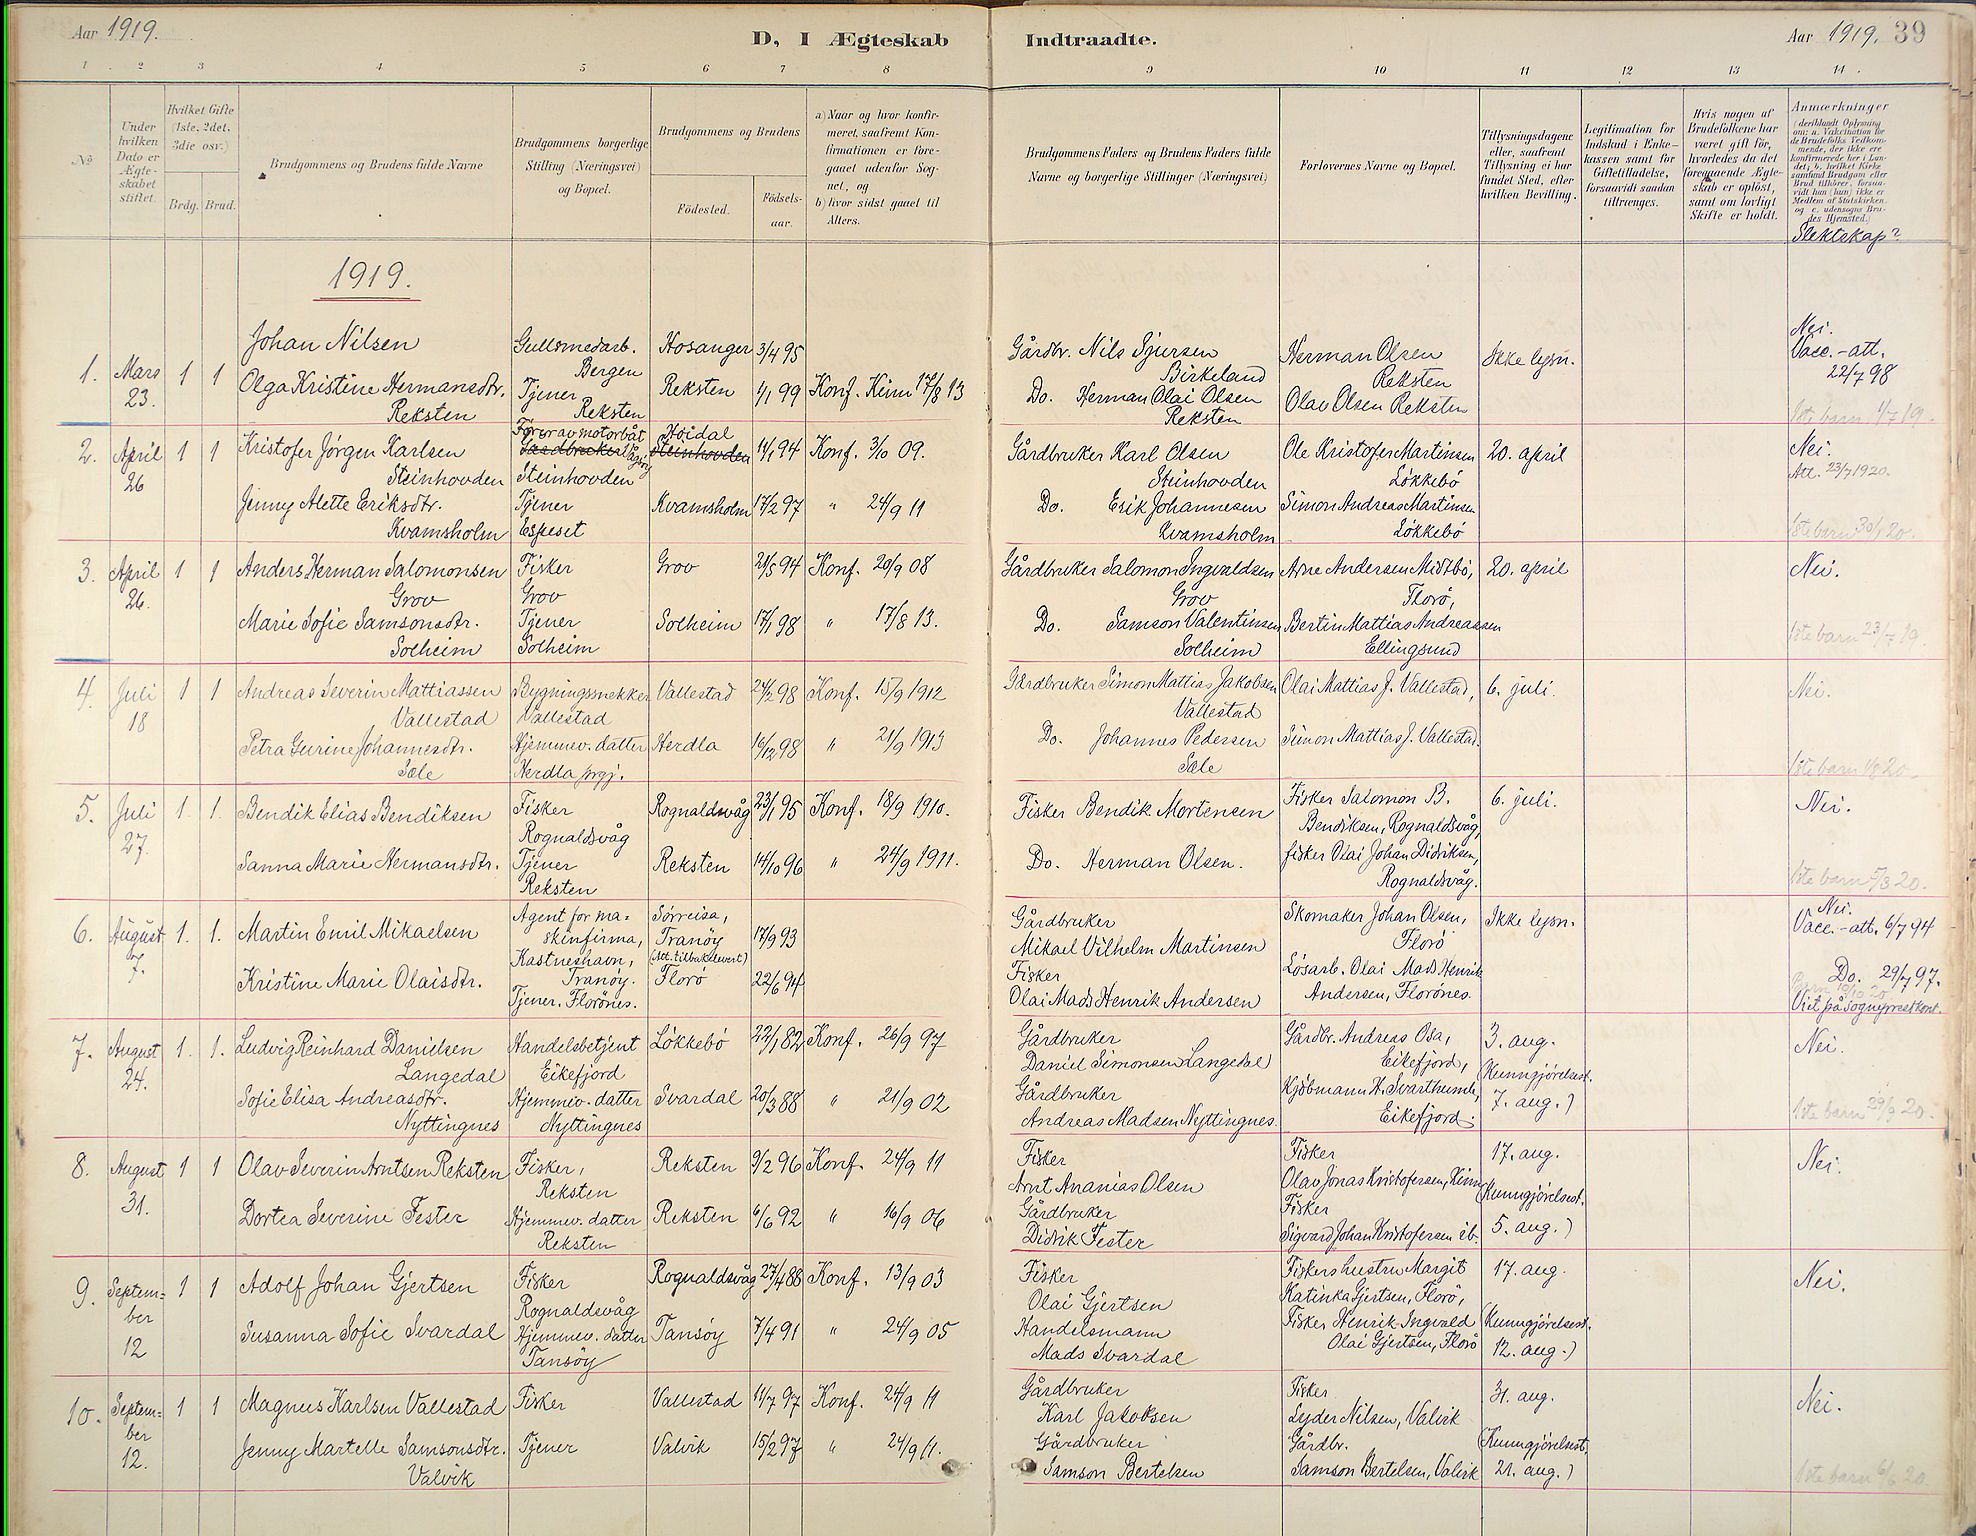 Aar 1919.
D, I Ægteskab Indtraadte.
Aar 1919. 39
1 2 3 4 5 6 7 8 9 10 11 12 13 14
No
Under hvilken Dato er Ægte-skabet stiftet.
Hvilket Gifte (1ste, 2det, 3die osv.)
Brdg. Brud.
Brudgommens og Brudens fulde Navne
Brudgommens borgerlige Stilling (Næringsvei) og Bopæl.
Brudgommens og Brudens
Fødested.
Fødsels-aar.
a) Naar og hvor konfir-
meret, saafremt Kon-
firmationen er fore-
gaaet udenfor Sog-
net, og
b) hvor sidst gaaet til
Alters.
Brudgommens Faders og Brudens Faders fulde
Navne og borgerlige Stillinger (Næringsvei)
Forlovernes Navne og Bopæl.
Tillysningsdagene
eller, saafremt
Tillysning ei har
fundet Sted, efter
hvilken Bevilling.
Legitimation for
Indskud i Enke-
kassen samt for
Giftetilladelse,
forsaavidt saadan
tiltrænges.
Hvis nogen af
Brudefolkene har
været gift før,
hvorledes da det
foregaaende Ægte-
skab er opløst,
samt om lovligt
Skifte er holdt.
Anmærkninger
(deriblandt Oplysning
om: a. Vakcination for
de Brudefolks Vedkom-
mende, der ikke ere
konfirmerede her i Lan-
det; b. hvilket Kirke
samfund Brudgom eller
Brud tilhører, forsaa-
vidt han (hun) ikke er
Medlem af Statskirken.
og c. udensogns Bru-
des Hjemsted.)
Slektskap?
1919.
1. Mars 23. 1 1
Johan Nilsen
Gullsmedarb. Bergen
Hosanger 3/4 95
Gårdbr. Nils Sjursen Birkeland
Herman Olsen Reksten
Ikke lysn.
Nei.
Vacc.-att. 22/7 98
Olga Kristine Hermansdtr. Reksten
Tjener Reksten
Reksten 4/1 99 Konf. Kinn 17/8 13
Do. Herman Olai Olsen Reksten
Olav Olsen Reksten
1ste barn 4/7 19.
2. April 26 1 1
Kristofer Jørgen Karlsen Steinhovden
Fører av motorbåt
Gardbruker
Steinhovden
Høidal
Steinhovden
14/1 94 Konf. 3/10 09.
Gårdbruker Karl Olsen Steinhovden
Ole Kristofer Martinsen Løkkebø
20. april
Nei.
Att. 23/7 1920.
Jenny Alette Eriksdtr. Kvamsholm
Tjener Espeset
Kvamsholm 17/2 97 " 24/9 11
Do. Erik Johannesen Kvamsholm
Simon Andreas Martinsen Løkkebø
1ste barn 30/1 20.
3. April 26. 1 1
Anders Herman Salomonsen Grov
Fisker Grov
Grov 21/5 94 Konf. 20/9 08
Gårdbruker Salomon Ingvaldsen Grov
Arne Andersen Midtbø, Florø,
20. april
Nei.
Marie Sofie Samsonsdtr. Solheim
Tjener Solheim
Solheim 17/1 98 " 17/8 13.
Do. Samson Valentinsen Solheim
Bertin Mattias Andreassen Ellingsund
1ste barn 23/7 19.
4. Juli 18 1 1
Andreas Severin Mattiassen Vallestad
Bygningssnekker Vallestad
Vallestad 24/2 98 Konf. 15/9 1912
Gårdbruker Simon Mattias Jakobsen Vallestad
Olai Mattias J. Vallestad,
6. juli.
Nei.
Petra Gurine Johannesdtr. Sæle
Hjemmev. datter Herdla prgj.
Herdla 16/12 98 " 21/9 1913
Do. Johannes Pedersen Sæle
Simon Mattias J. Vallestad.
1ste barn 1/8 20
5. Juli 27. 1. 1.
Bendik Elias Bendiksen
Fisker Rognaldsvåg
Rognaldsvåg 23/1 95 Konf. 18/9 1910.
Fisker Bendik Mortensen
Fisker Salomon B. Bendiksen, Rognaldsvåg,
6. juli.
Nei.
Sanna Marie Hermansdtr.
Tjener Reksten
Reksten 14/10 96 " 24/9 1911.
Do. Herman Olsen.
fisker Olai Johan Didriksen, Rognaldsvåg.
1ste barn 5/3 20.
6. August 7. 1. 1.
Martin Emil Mikaelsen
Agent for ma-skinfirma, Kastneshavn, Tranøy.
Sørreisa, Tranøy
(Att. tilbakelevert)
17/9 93
Gårdbruker
Mikael Vilhelm Martinsen
Skomaker Johan Olsen, Florø
Ikke lysn.
Nei.
Vacc.-att. 6/7 94
Kristine Marie Olaisdtr.
Tjener. Florønes.
Florø 22/6 94
Fisker
Olai Mads Henrik Andersen
Løsarb. Olai Mads Henrik Andersen, Florønes.
Do. 29/7 97.
Barn 10/10 20
Viet på sogneprestkont.
7. August 24. 1. 1.
Ludvig Reinhard Danielsen Langedal
Handelsbetjent Eikefjord
Løkkebø 22/1 82 Konf. 26/9 97
Gårdbruker
Daniel Simonsen Langedal
Gårdbr. Andreas Osa, Eikefjord,
3. aug.
(Kunngjørelsest. 7. aug.)
Nei.
Sofie Elisa Andreasdtr. Nyttingnes
Hjemmev. datter Nyttingnes
Svardal 20/3 88 " 21/9 02
Gårdbruker
Andreas Madsen Nyttingnes.
Kjøbmann K. Svarthumle, Eikefjord.
1ste barn 29/9 20.
8. August 31. 1 1
Olav Severin Arntsen Reksten
Fisker, Reksten
Reksten 9/2 96 Konf. 24/9 11
Fisker
Arnt Ananias Olsen
Fisker
Olav Jonas Kristofersen, Kinn
17. aug.
(Kunngjørelsest. 5. aug.)
Nei.
Dortea Severine Fester
Hjemmev. datter Reksten
Reksten 6/6 92 " 16/9 06
Gårdbruker
Didrik Fester
Fisker
Sigvard Johan Kristofersen ib.
9. Septem-ber 12 1 1
Adolf Johan Gjertsen
Fisker Rognaldsvåg
Rognaldsvåg 27/4 88 Konf. 13/9 03
Fisker
Olai Gjertsen
Fiskers hustru Margit Katinka Gjertsen, Florø,
17. aug.
(Kunngjørelsest. 12. aug.)
Nei.
Susanna Sofie Svardal
Hjemmev. datter Tansøy
Tansøy 7/4 91 " 24/9 05
Handelsmann
Mads Svardal
Fisker Henrik Ingvald Olai Gjertsen, Florø
10. Septem-ber 12. 1 1
Magnus Karlsen Vallestad
Fisker
Vallestad 11/7 97 Konf. 24/9 11
Gårdbruker
Karl Jakobsen
Fisker
Lyder Nilsen, Valvik
31. aug.
(Kunngjørelsest. 21. aug.)
Nei.
Jenny Martelle Samsonsdtr. Valvik
Tjener
Valvik 15/2 97 " 24/9 11.
Gårdbruker
Samson Bertelsen
Gårdbr.
Samson Bertelsen, Valvik
1ste barn 6/6 20.